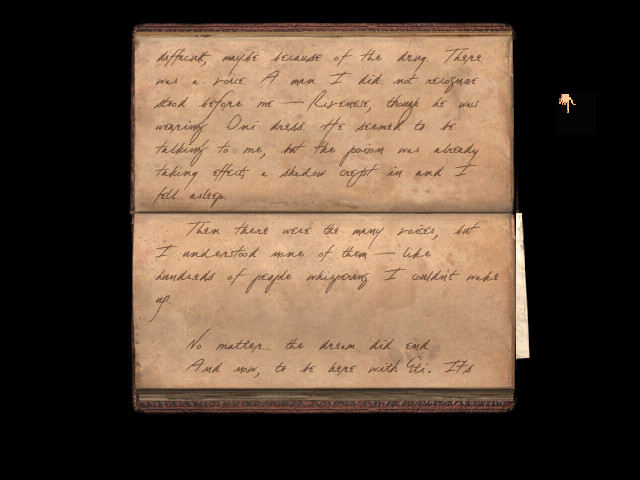 difficult, maybe because of the drug. There
was a voice. A man I did not recognise
stood before me — Rivenese, though he was
wearing D'ni dress. He seemed to be
talking to me, but the poison was already
taking effect, a shadow crept in and I
fell asleep.
Then there were the many voices, but
I understood none of them — like
hundreds of people whispering. I couldn't wake
up.
No matter... the dream did end
And now, to be here with Gti. It's